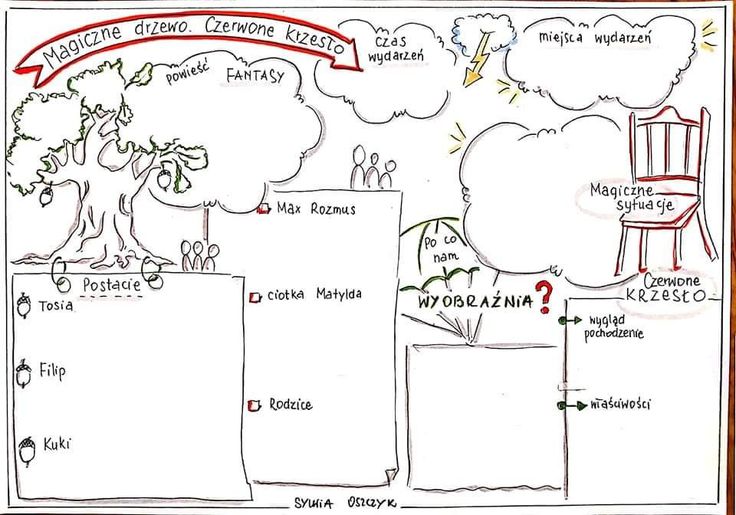 Magiczne drzewo. Czerwone Krzesło
powieść FANTASY
czas
wydarzeń
miejsca wydarzeń
Magiczne
sytuacje
Max Rozmus
ciotka Matylda
Rodzice
Postacie
Tosia
Filip
Kuki
Po co
nam
WYOBRAŹNIA?
Czerwone
KRZESŁO
wygląd
pochodzenie
właściwości
SYLWIA OSZCZYK